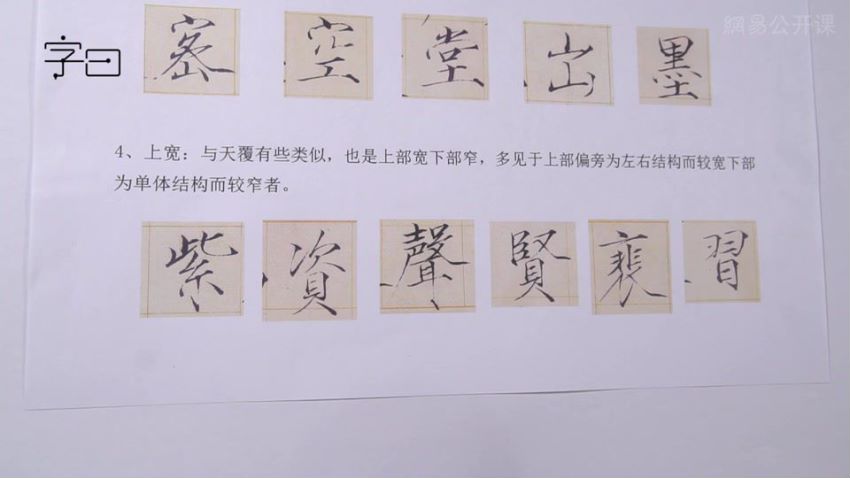 網易公开课
字曰
密 空 堂 出 墨
4、上宽：与天覆有些类似，也是上部宽下部窄，多见于上部偏旁为左右结构而较宽下部
为单体结构而较窄者。
紫 資 聲 賢 裴 習